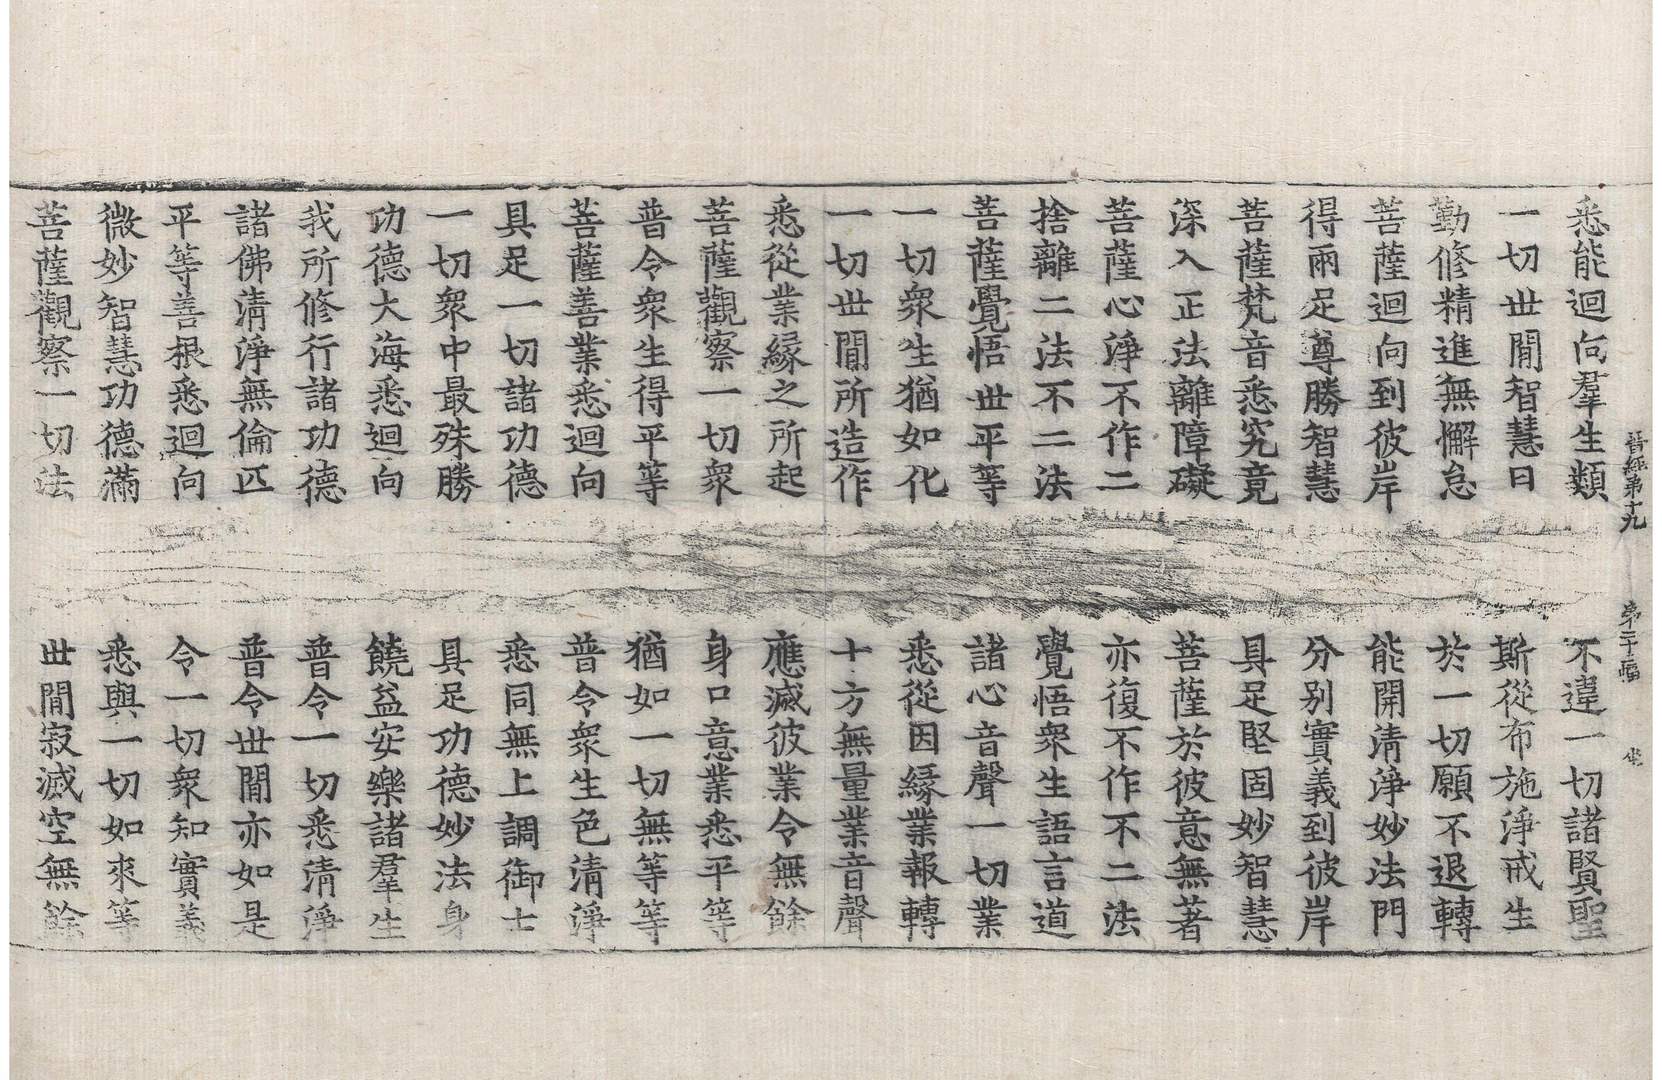 晉經第十九 第二十幅 坐
悉能迴向羣生類 不違一切諸賢聖
一切世間智慧日 斯從布施淨戒生
勤修精進無懈怠 於一切願不退轉
菩薩迴向到彼岸 能開清淨妙法門
得兩足尊勝智慧 分別實義到彼岸
菩薩梵音悉究竟 具足堅固妙智慧
深入正法離障礙 菩薩於彼意無著
菩薩心淨不作二 亦復不作不二法
捨離二法不二法 覺悟衆生語言道
菩薩覺悟世平等 諸心音聲一切業
一切衆生猶如化 悉從因緣業報轉
一切世間所造作 十方無量業音聲
悉從業緣之所起 應滅彼業令無餘
菩薩觀察一切衆 身口意業悉平等
普令衆生得平等 猶如一切無等等
菩薩善業悉迴向 普令衆生色清淨
具足一切諸功德 悉同無上調御士
一切衆中最殊勝 具足功德妙法身
功德大海悉迴向 饒益安樂諸羣生
我所修行諸功德 普令一切悉清淨
諸佛清淨無倫匹 普令世間亦如是
平等善根悉迴向 令一切衆知實義
微妙智慧功德滿 悉與一切如來等
菩薩觀察一切法 世間寂滅空無餘